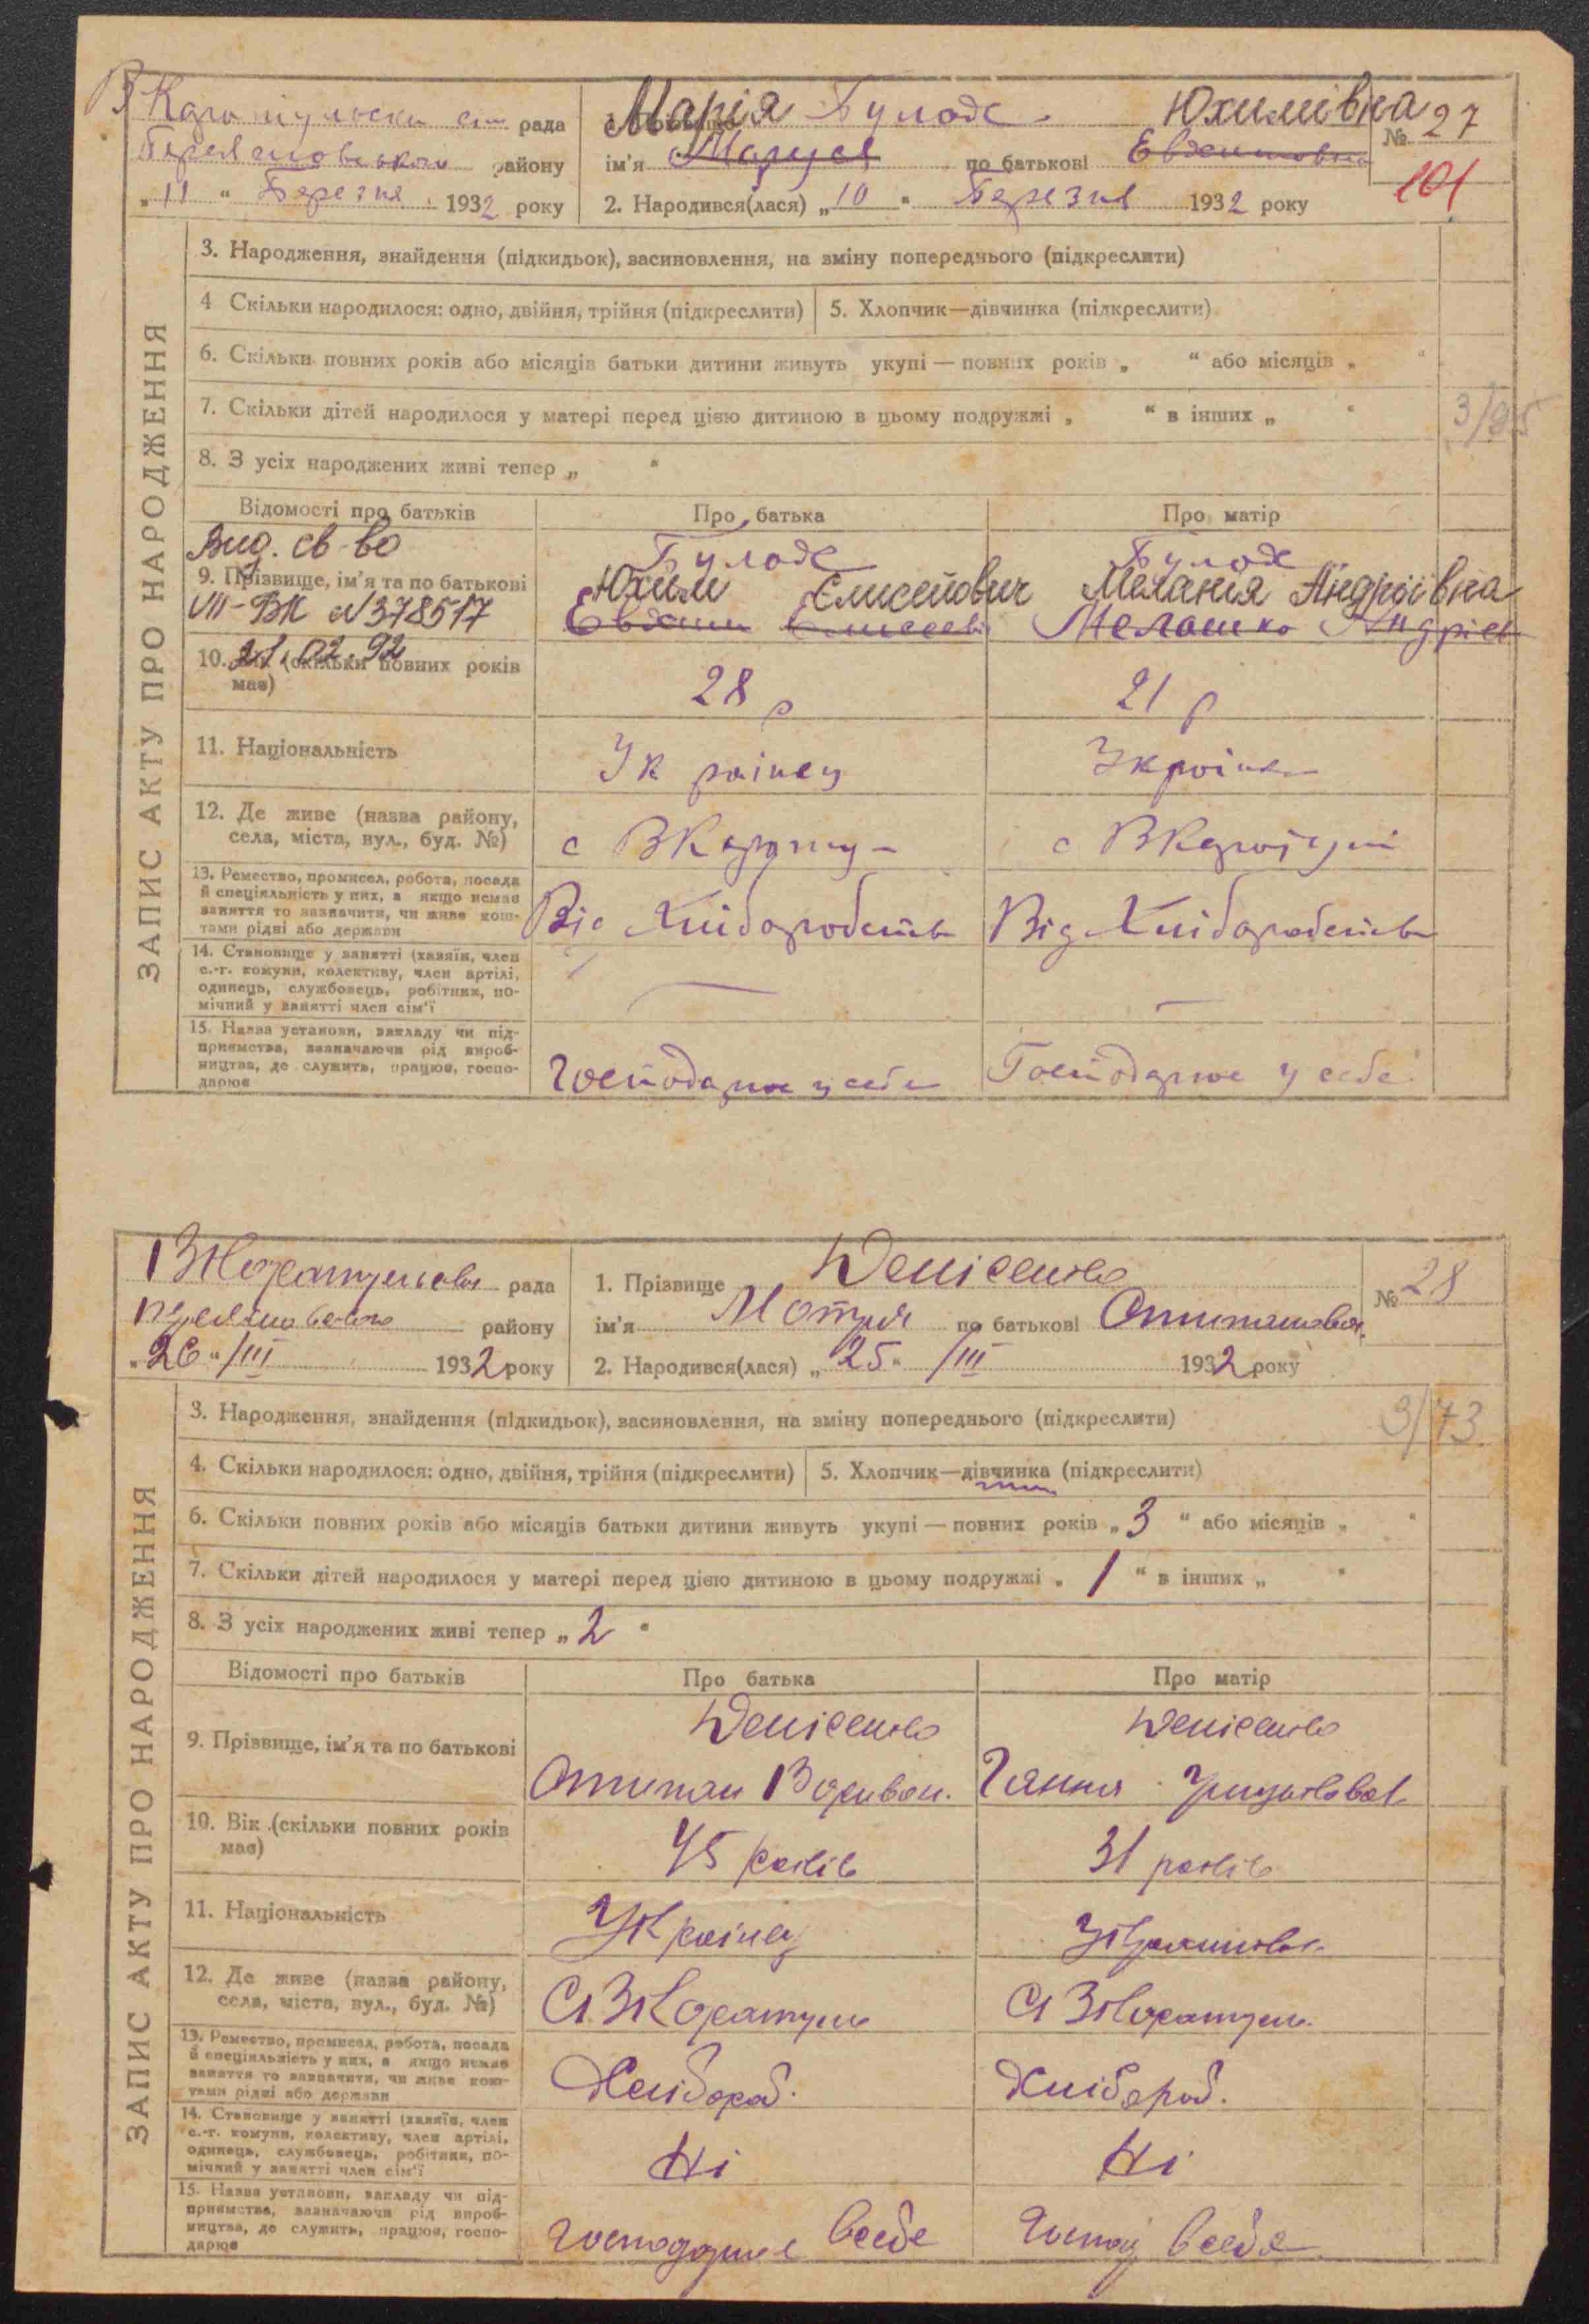 В Каратульська рада
Переяславського району
„11“ Березня 1932 року
Марія Булах Юхимівна
№ 27
ім'я Маруся по батькові
101
2. Народився(лася) „10“ Березня 1932 року
ЗАПИС АКТУ ПРО НАРОДЖЕННЯ
3. Народження, знайдення (підкидьок), васиновлення, на зміну попереднього (підкреслити)
4 Скільки народилося: одно, двійня, трійня (підкреслити)
5. Хлопчик—дівчинка (підкреслити)
6. Скільки повних років або місяців батьки дитини живуть укупі — повних років „ “ або місяців „ “
7. Скільки дітей народилося у матері перед цією дитиною в цьому подружжі „ “ в інших „ “
8. З усіх народжених живі тепер „ “
Відомості про батьків
Про батька
Про матір
Вид. св-во
9. Прізвище, ім'я та по батькові
VII-ВК №378517
21.02.92
Юхим Єлисейович
Меланія Андріївна
10. (скільки повних років
має)
28 р
21 р
11. Національність
Українец
Українка
12. Де живе (назва району,
села, міста, вул., буд. №)
13. Ремество, промисел, робота, посада
й спеціяльність у них, а якщо немає
заняття то зазначити, чи живе кош-
тами рідні або держави
Від Хліборобства
Від Хліборобства
14. Становище у занятті (хазяїн, член
с.-г. комуни, колективу, член артілі,
одинець, службовець, робітник, по-
мічний у занятті член сім'ї
15. Назва установи, закладу чи під-
приємства, зазначаючи рід вироб-
ництва, де служить, працює, госпо-
дарює
Господарює у себе
Господарює у себе
рада
району
„26“/III 1932 року
1. Прізвище Денісенко
№ 28
ім'я Мотря по батькові
2. Народився(лася) „25“ /III 1932 року
ЗАПИС АКТУ ПРО НАРОДЖЕННЯ
3. Народження, знайдення (підкидьок), васиновлення, на зміну попереднього (підкреслити)
3/73
4. Скільки народилося: одно, двійня, трійня (підкреслити)
5. Хлопчик—дівчинка (підкреслити)
6. Скільки повних років або місяців батьки дитини живуть укупі — повних років „3“ або місяців „ “
7. Скільки дітей народилося у матері перед цією дитиною в цьому подружжі „1“ в інших „ “
8. З усіх народжених живі тепер „2“
Відомості про батьків
Про батька
Про матір
9. Прізвище, ім'я та по батькові
Денісенко
Денісенко
Ганна
10. Вік (скільки повних років
має)
45 років
31 років
11. Національність
Українец
12. Де живе (назва району,
села, міста, вул., буд. №)
13. Ремество, промисел, робота, посада
й спеціяльність у них, а якщо немає
заняття то зазначити, чи живе кош-
тами рідні або держави
Хлібороб.
Хлібороб.
14. Становище у занятті (хазяїн, член
с.-г. комуни, колективу, член артілі,
одинець, службовець, робітник, по-
мічний у занятті член сім'ї
Ні
Ні
15. Назва установи, закладу чи під-
приємства, зазначаючи рід вироб-
ництва, де служить, працює, госпо-
дарює
Господарює всебе
всебе